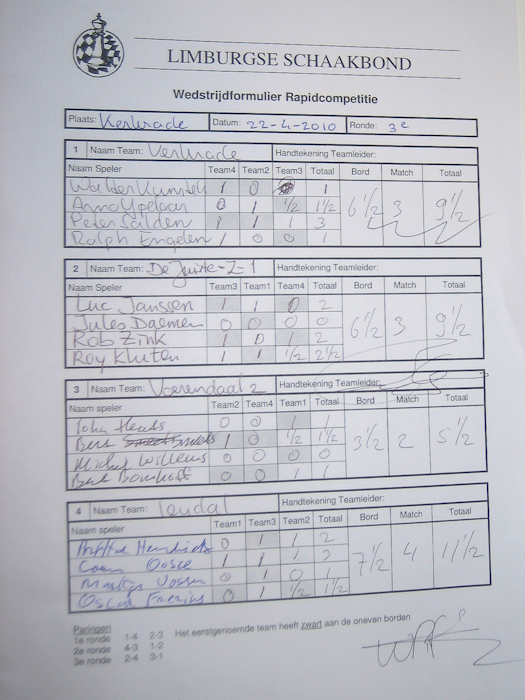 LIMBURGSE SCHAAKBOND
Wedstrijdformulier Rapidcompetitie
Plaats: Kerkrade Datum: 22-4-2010 Ronde: 3e
1 Naam Team: Kerkrade Handtekening Teamleider:
Naam Speler Team4 Team2 Team3 Totaal Bord Match Totaal
Walter 1 0 1
Arno Ypelaar 0 1 1/2 1 1/2 6 1/2 3 9 1/2
Peter Salden 1 1 1 3
Ralph Engelen 1 0 0 1
2 Naam Team: De Juiste-Z-1 Handtekening Teamleider:
Naam Speler Team3 Team1 Team4 Totaal Bord Match Totaal
Luc Janssen 1 1 0 2
Jules Daemen 0 0 0 0 6 1/2 3 9 1/2
Rob Zink 1 0 1 2
Roy Kluten 1 1 1/2 2 1/2
3 Naam Team: Voerendaal 2 Handtekening Teamleider:
Naam speler Team2 Team4 Team1 Totaal Bord Match Totaal
John 0 0 1 1
Bert 1 0 1/2 1 1/2 3 1/2 2 5 1/2
Michel Willems 0 0 0 0
0 0 1 1
4 Naam Team: Leudal Handtekening Teamleider:
Naam speler Team1 Team3 Team2 Totaal Bord Match Totaal
0 1 1 2
Coen 1 1 1 3 7 1/2 4 11 1/2
0 1 0 1
Oscar 0 1 1/2 1 1/2
Paringen Het eerstgenoemde team heeft zwart aan de oneven borden
1e ronde 1-4 2-3
2e ronde 4-3 1-2
3e ronde 2-4 3-1